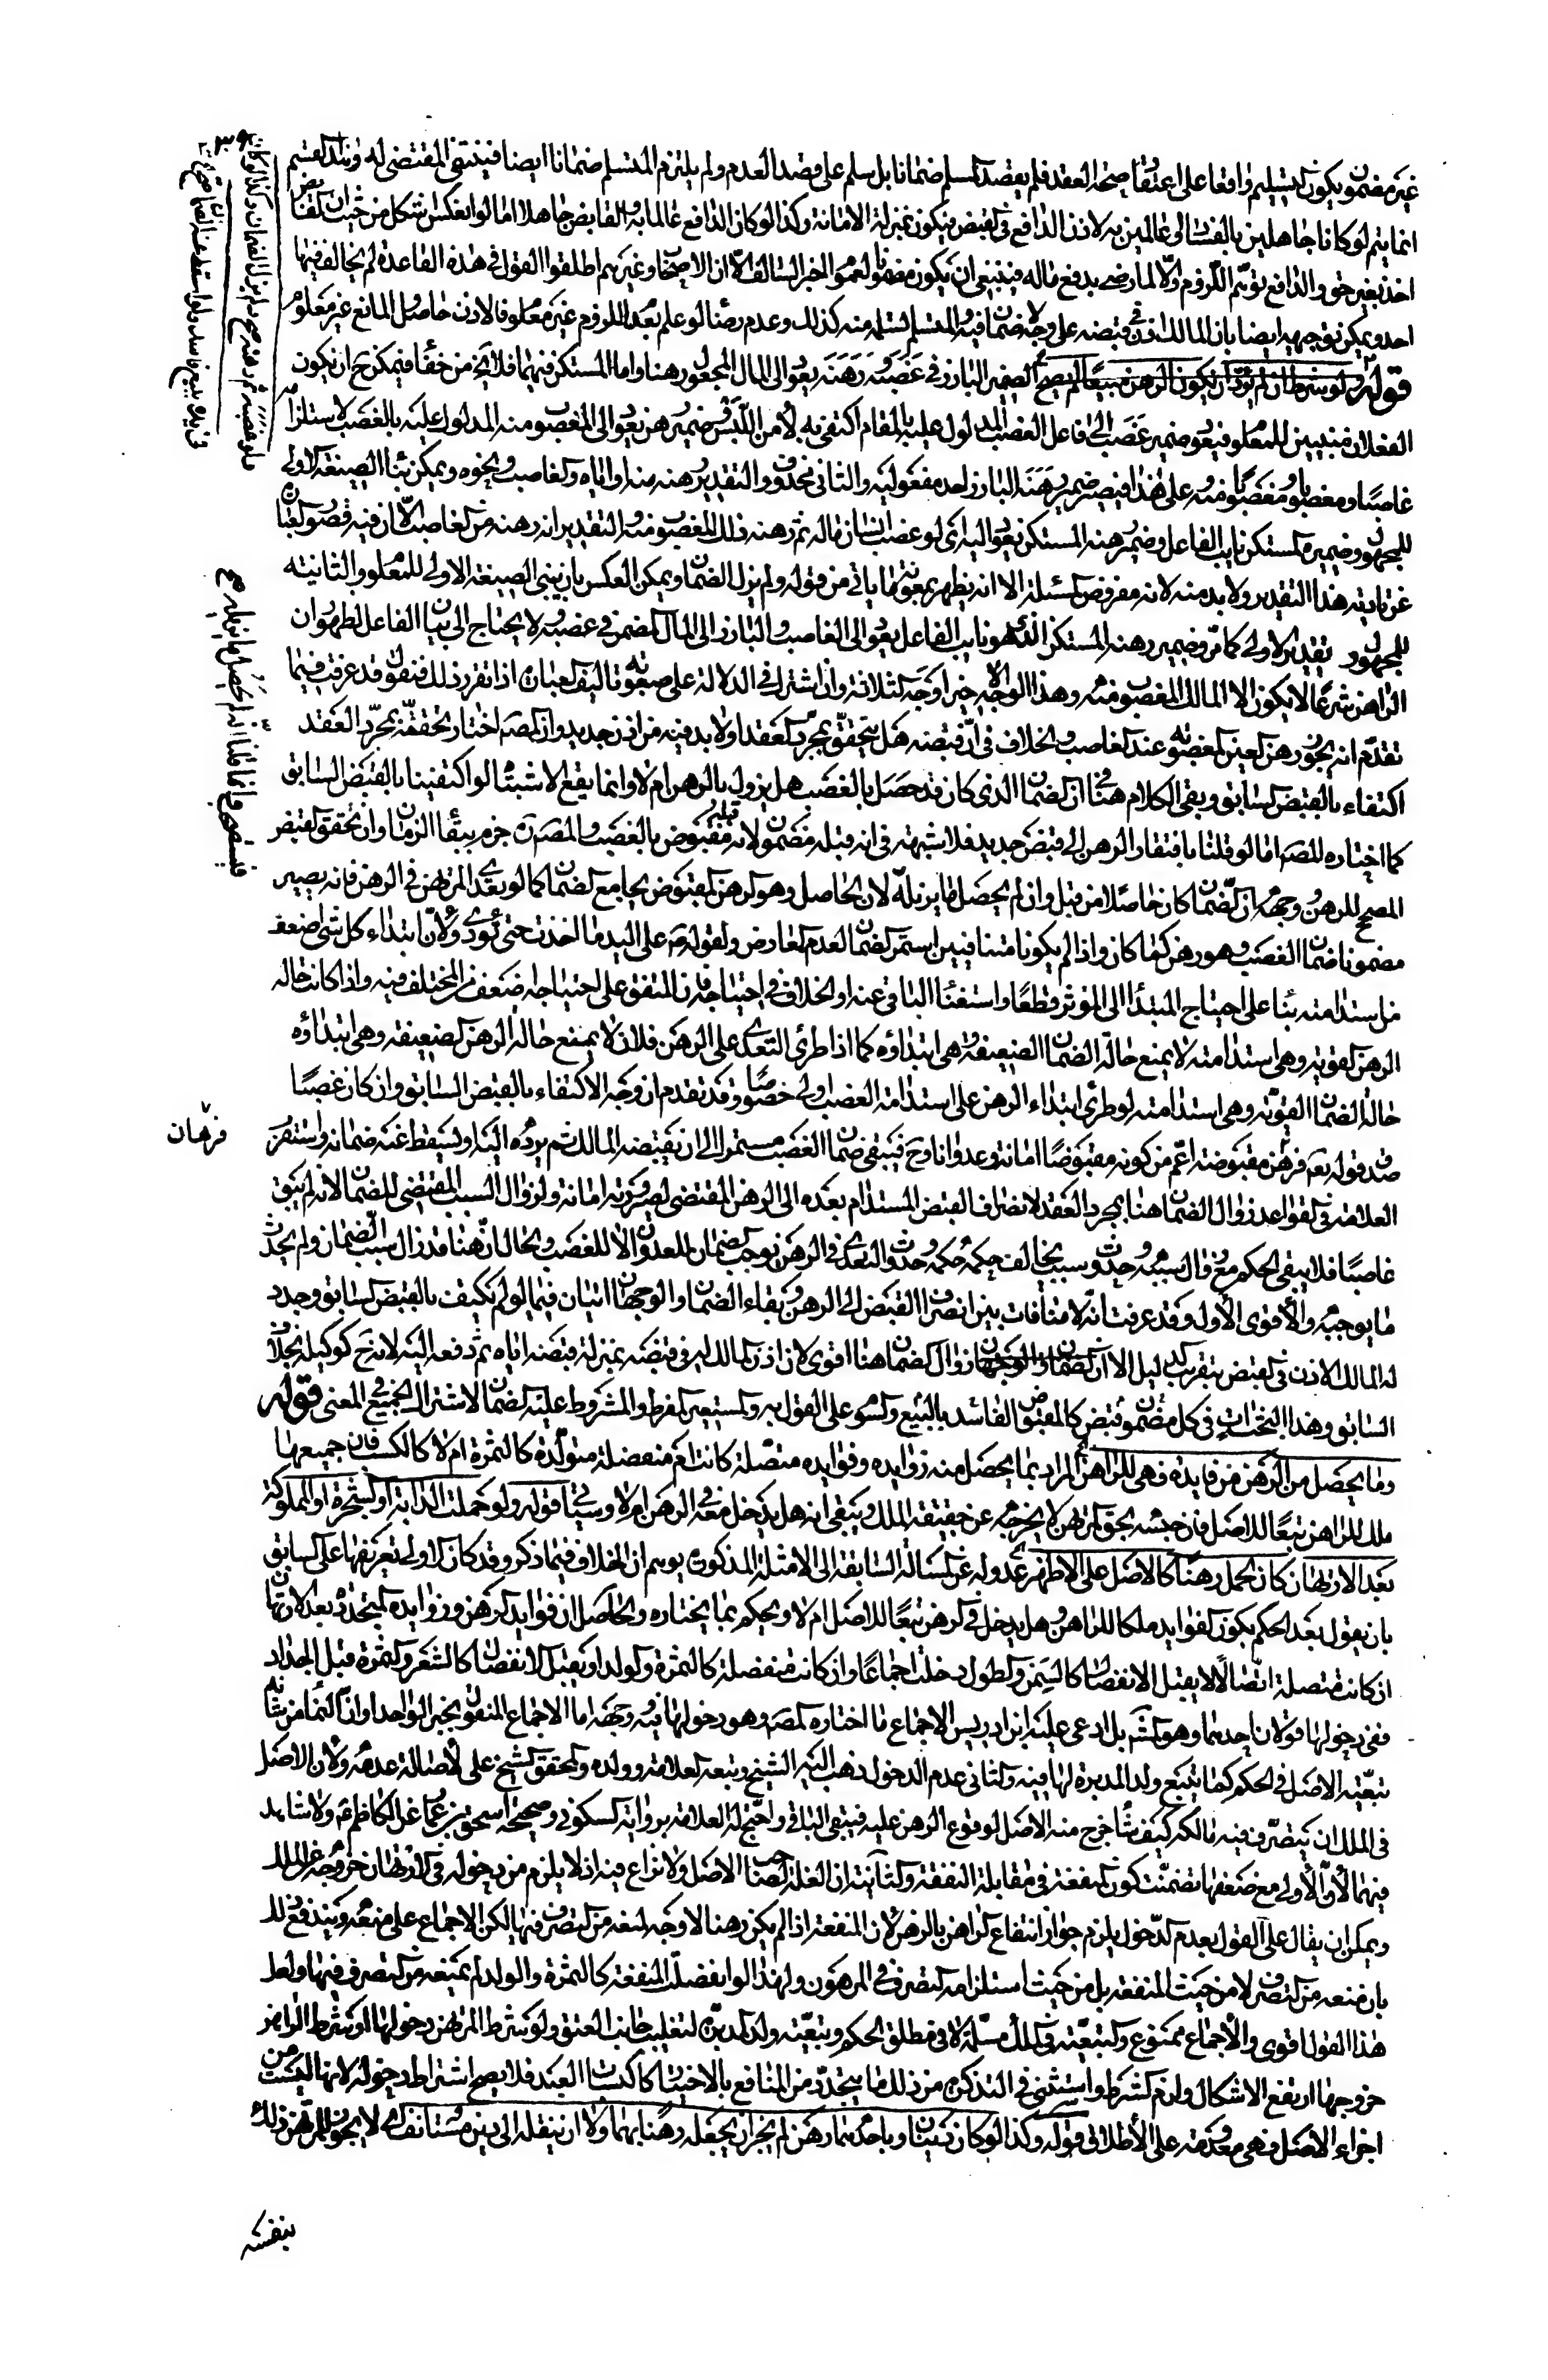 غير مضمون ويكون التسليم واقعا على اعتقاد صحة العقد فلم يقصد المسلم ضمانا بل سلم على قصد العدم ولم يلتزم المتسلم ضمانا ايضا فينتفي المقتضى له وهذا القسم
انما يتم لو كانا جاهلين بالفساد او عالمين به لاذن الدافع في القبض فيكون بمنزلة الامانة وكذا لو كان الدافع عالما به والقابض جاهلا اما لو انعكس اشكل من حيث ان القابض
اخذ بغير حق والدافع توهم اللزوم والا لما رضي بدفع ماله فينبغي ان يكون مضمونا لعموم الخبر السالف الا ان الاصحاب وغيرهم اطلقوا القول في هذه القاعدة لم يخالف فيها
احد ويمكن توجيهه ايضا بان المالك اذن في قبضه على وجه لا ضمان فيه والمتسلم تسلمه منه كذلك وعدم رضائه لو علم بعد اللزوم غير معلوم فالاذن حاصل والمانع غير معلوم
قوله ولو شرط ان لم يؤد ان يكون الرهن مبيعا لم يصح الضمير البارز في غصبه ورهنه يعود الى المال المجعول رهنا واما المستكن فيهما فلا يخ من خفأ فيمكن ح ان يكون
الفعلان مبنيين للمعلوم فيعود ضمير غصب الى فاعل الغصب المدلول عليه بالمقام اكتفي به لأمن اللبس وضمير رهن يعود الى المغصوب منه المدلول عليه بالغصب لاستلزامه
غاصبا ومغصوبا ومغصوبا منه وعلى هذا فيصير ضمير رهنه البارز احد مفعوليه والثاني محذوف والتقدير رهنه منه او اياه والغاصب ونحوه ويمكن بنأ الصيغة الاولى
للمجهول وضميره المستكن نايب الفاعل وضمير رهنه المستكن يعود اليه اي لو غصب انسان ماله ثم رهنه ذلك المغصوب منه والتقدير انه رهنه من الغاصب الا ان فيه قصور العبارة
عن تادية هذا التقدير ولا بد منه لانه مفروض المسئلة الا انه يظهر بمعونة ما ياتي من قوله ولم يزل الضمان ويمكن العكس بان يبنى الصيغة الاولى للمعلوم والثانية
للمجهول وتقدير الاولى كما مر وضمير رهنه المستكن الذي هو نايب الفاعل يعود الى الغاصب والبارز الى المال المضمر في غصبه ولا يحتاج الى بيان الفاعل لظهور ان
الراهن شرعا لا يكون الا المالك المغصوب منه وهذا الوجه الاخير اوجه الثلاثة وان اشترك في الدلالة على صعوبة تاليف العبارة اذا تقرر ذلك فنقول قد عرفت فيما
تقدم انه يجوز رهن العين المغصوبة عند الغاصب والخلاف في ان قبضه هل يتحقق بمجرد العقد او لا بد فيه من اذن جديد وان المصه اختار تحققه بمجرد العقد
اكتفاء بالقبض السابق وبقي الكلام هنا في ان الضمان الذي كان قد حصل بالغصب هل يزول بالرهن ام لا وانما يقع الاشتباه لو اكتفينا بالقبض السابق
كما اختاره المصه اما لو قلنا بافتقار الرهن الى قبض جديد فلا شبهة في انه قبله مضمون لانه مقبوض بالغصب والمصه جزم ببقأ الزمان وان تحقق القبض
المصحح للرهن ووجهه ان الضمان كان حاصلا من قبل وان لم يحصل ما يزيله لان الحاصل وهو الرهن المقبوض يجامع الضمان كما لو تعدى المرتهن في الرهن فانه يصير
مضمونا ضمان الغصب وهو رهن كما كان واذا لم يكونا متنافيين استمر الضمان لعدم المعارض ولقوله ص على اليد ما اخذت حتى تؤدي ولان ابتداء كل شئ اضعف
من استدامته بنأ على احتياج المبتدأ الى المؤثر قطعا واستغنأ الباقي عنه او الخلاف في احتياجه فان المتفق على احتياجه اضعف من المختلف فيه واذا كانت حالة
الرهن القوية وهي استدامته لا يمنع حالة الضمان الضعيفة وهي ابتداؤه كما اذا طرئ التعدي على الرهن فلان لا يمنع حالة الرهن الضعيفة وهي ابتداؤه
حالة الضمان القوية وهي استدامته لو طرئ ابتداء الرهن على استدامة الغصب اولى خصوصا وقد تقدم ان وجه الاكتفاء بالقبض السابق وان كان غصبا
صدق قوله تعم فرهن مقبوضة اعم من كونه مقبوضا امانة وعدوانا وح فيبقى ضمان الغصب مستمرا الى ان يقبضه المالك ثم يرده اليه او يسقط عنه ضمانه واستقرب
العلامة في القواعد زوال الضمان هنا بمجرد العقد لانصراف القبض المستدام بعده الى الرهن المقتضي لصيرورته امانة ولزوال السبب المقتضي للضمان لانه لم يبق
غاصبا فلا يبقى الحكم مع زوال سببه وحدوث سبب يخالف حكمه حكمه وحدوث التعدي في الرهن يوجب ضمان العدوان لا الغصب والحال ان هنا قد زال سبب الضمان ولم يحدث
ما يوجبه والاقوى الاول وقد عرفت انه لا منافات بين انصراف القبض الى الرهن وبقاء الضمان والوجهان اتيان فيما لو لم يكتف بالقبض السابق وجدد
له المالك الاذن في القبض بتقريب الدليل الا ان الضمان والوجهان زوال الضمان هنا اقوى لان اذن المالك له في قبضه بمنزلة قبضه اياه ثم دفعه اليه لانه ح كوكيله بخلاف
السابق وهذا البحث ات في كل مضمون قبض كالمقبوض الفاسد بالبيع والسوم على القول به والمستعير المفرط والمشروط عليه الضمان لاشتراك الجميع في المعنى قوله
وما يحصل من الرهن من فايدة فهي للراهن المراد بما يحصل منه زوايده وفوايده متصلة كانت ام منفصلة متولدة كالثمرة ام لا كالكسب فان جميعها
ملك للراهن تبعا للاصل فان حبسه بحق المرتهن لا يخرجه عن حقيقة الملك ويبقى انه هل يدخل معه في الرهن ام لا وسيأتي قوله ولو حملت الدابة او الشجرة او المملوكة
بعد الارتهان كان الحمل رهنا كالاصل على الاظهر عدوله عن المسألة السابقة الى الامثلة المذكورة يوهم ان الخلاف فيما ذكر وقد كان الاولى تعريفها على السابق
بان يقول بعد الحكم بكون الفوايد ملكا للراهن وهل يدخل في الرهن تبعا للاصل ام لا ويحكم بما يختاره والحاصل ان فوايد الرهن وزوايده المتجددة بعد الارتهان
ان كانت متصلة اتصالا لا يقبل الانفصال كالسمن والطول دخلت اجماعا وان كانت منفصلة كالثمرة والولد او يقبل الانفصال كالشعر والثمرة قبل الجذاذ
ففي دخولها قولان احدهما وهو المشهـ بل ادعى عليه ابن ادريس الاجماع ما اختاره المصه وهو دخولها فيه وجهه اما الاجماع المنقول بخبر الواحد او ان النمأ من شانه
تبعيته الاصل في الحكم كما يتبع ولد المدبرة لها فيه والثاني عدم الدخول ذهب اليه الشيخ وتبعه العلامة وولده والمحقق الشيخ على لاصالة عدمه ولان الاصل
في الملك ان يتصرف فيه مالكه كيف شأ خرج منه الاصل لوقوع الرهن عليه فيبقى الباقي واحتج له العلامة برواية السكوني وصحيحة اسحق بن عمار عن الكاظم ع ولا شاهد
فيهما لان الاولى مع ضعفها تضمنت كون المنفعة في مقابلة النفقة والثانية ان الغلة لصاحب الاصل ولا نزاع فيه اذ لا يلزم من دخوله في الارتهان خروجه عن الملك
ويمكن ان يقال على القول بعدم الدخول يلزم جواز انتفاع الراهن بالرهن لان المنفعة اذا لم يكن رهنا لا وجه لمنعه من التصرف فيها لكن الاجماع على منعه ويندفع ذلك
بان منعه من التصرف لا من حيث المنفعة بل من حيث استلزامه التصرف في المرهون ولهذا لو انفصلت المنفعة كالثمرة والولد لم يمنعه من التصرف فيها ولعل
هذا القول اقوى والاجماع ممنوع والتبعية في الملك مسلمة لا في مطلق الحكم وتبعية ولد المدبرة لتغليب جانب العتق ولو شرط المرتهن دخولها او شرط الراهن
خروجها ارتفع الاشكال ولزم الشرط واستثنى في التذكرة من ذلك ما يتجدد من المنافع بالاختيار كاكتساب العبد فلا يصح اشتراط دخوله لانها ليست من
اجزاء الاصل فهي معدومة على الاطلاق قوله وكذا لو كان دينان وباحدهما رهن لم يجز ان يجعله رهنا بهما ولا ان ينقله الى دين مستانف اي لا يجوز للمرتهن ذلك
بنفسه
فرهان